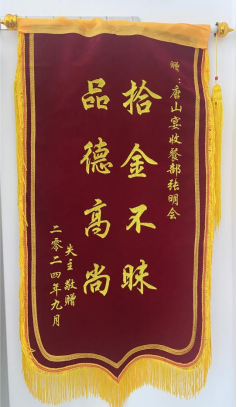 赠：唐山宴收餐部张明会
拾金不昧
品德高尚
失主敬赠
二零二四年九月